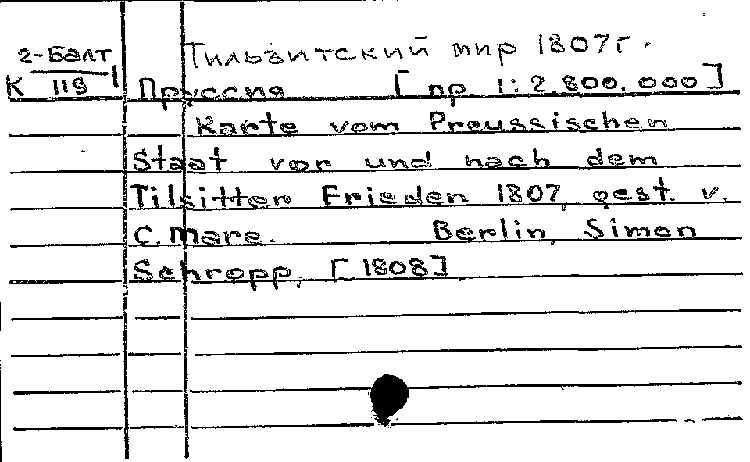 Тильзитский мир 1807г.
2-Балт
К 118/1
Пруссия [пр. 1:2.800.000]
Karte vom Preussischen
Staat vor und nach dem
Tilsitter Frieden 1807, gest. v.
C. Mare. Berlin, Simon
Schropp, [1808]